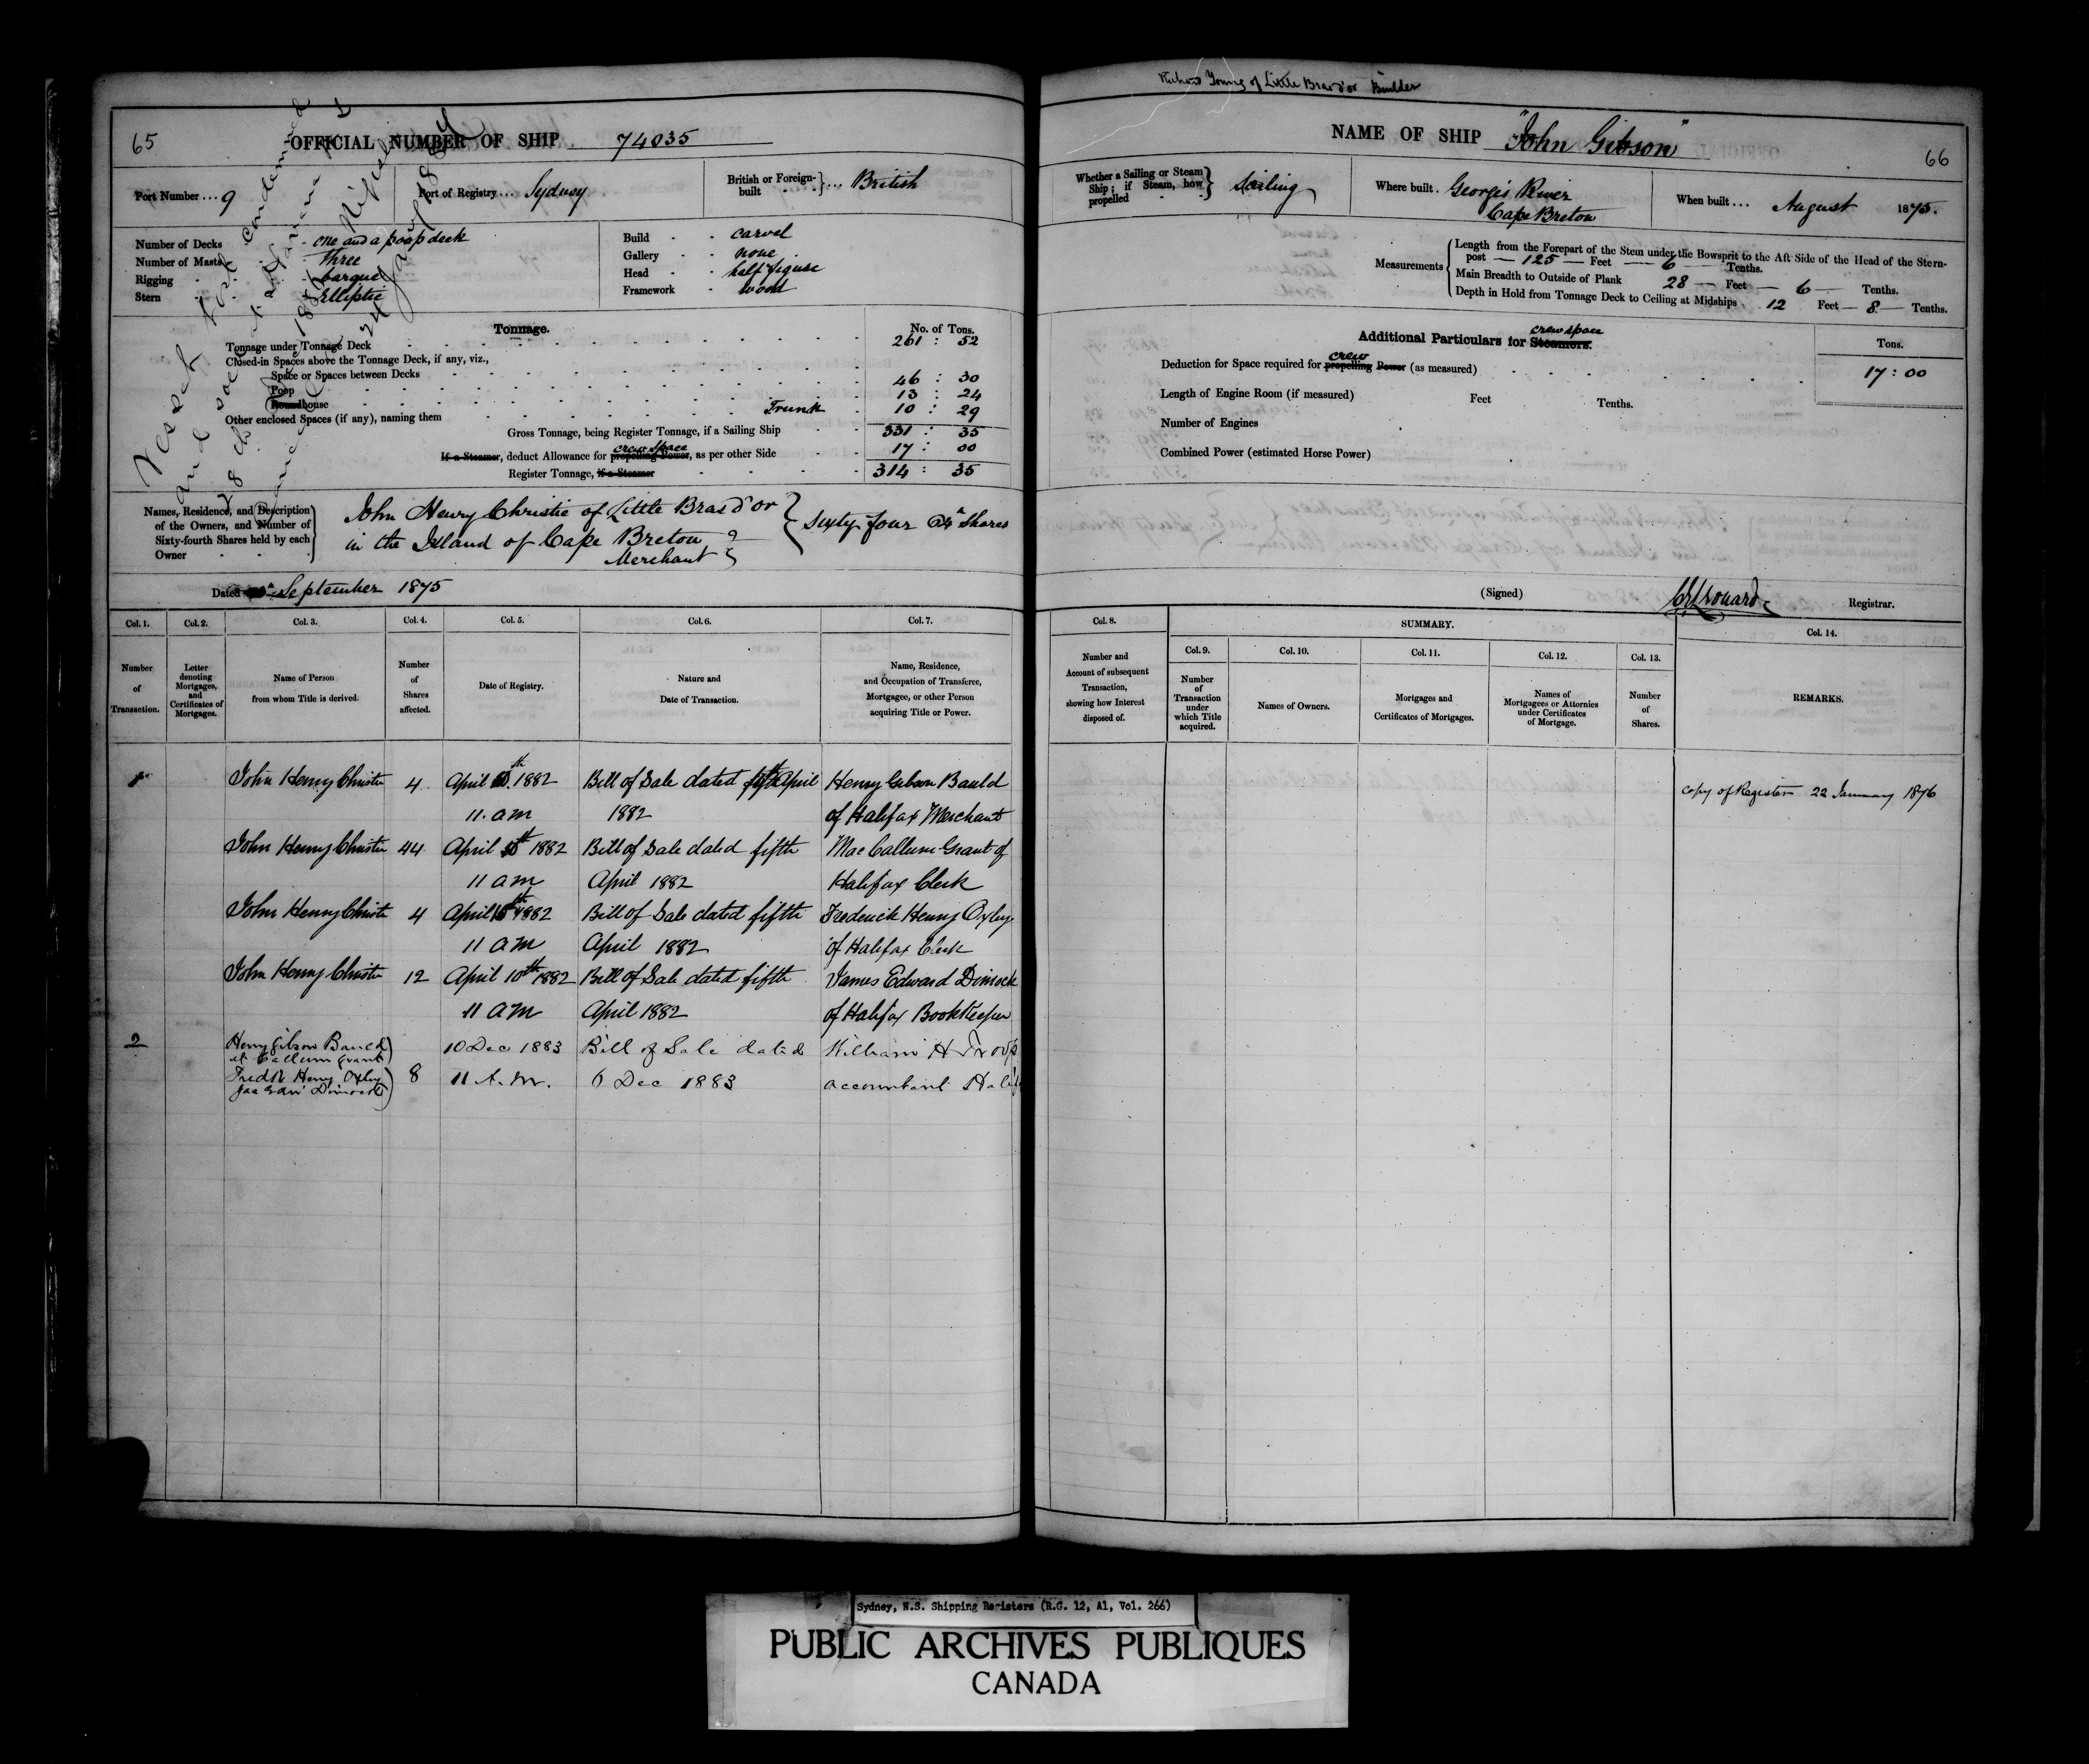 65
OFFICIAL NUMBER OF SHIP 74035
Port Number ... 9
Port of Registry ... Sydney
British or Foreign-built } ... British
Number of Decks - one and a poop deck
Number of Masts - Three
Rigging - barque
Stern - Elliptic
Build - carvel
Gallery - none
Head - half figure
Framework - wood
Tonnage.
No. of Tons.
Tonnage under Tonnage Deck 261 : 52
Closed-in Spaces above the Tonnage Deck, if any, viz.,
Space or Spaces between Decks 46 : 30
Poop 13 : 24
Roundhouse
Other enclosed Spaces (if any), naming them Trunk 10 : 29
Gross Tonnage, being Register Tonnage, if a Sailing Ship 331 : 35
crew space
If a Steamer, deduct Allowance for propelling Power, as per other Side 17 : 00
Register Tonnage, if a Steamer 314 : 35
Vessel condemned
and sold
28
24 Jany 1884
Names, Residence, and Description
of the Owners, and Number of
Sixty-fourth Shares held by each
Owner
John Henry Christie of Little Bras d'or
in the Island of Cape Breton
Merchant
Sixty four 64th Shares
Dated September 1875
Col. 1. Col. 2. Col. 3. Col. 4. Col. 5. Col. 6. Col. 7.
Number of Transaction.
Letter denoting Mortgages, and Certificates of Mortgages.
Name of Person from whom Title is derived.
Number of Shares affected.
Date of Registry.
Nature and Date of Transaction.
Name, Residence, and Occupation of Transferee, Mortgagee, or other Person acquiring Title or Power.
1 John Henry Christie 4 April th 1882 Bill of Sale dated fifth April Henry Gibson Bauld
11. am 1882 of Halifax Merchant
John Henry Christie 44 April th 1882 Bill of Sale dated fifth MacCallum Grant of
11 am April 1882 Halifax Clerk
John Henry Christie 4 April 10th 1882 Bill of Sale dated fifth Frederick Henry Oxley
11 am April 1882 of Halifax Clerk
John Henry Christie 12 April 10th 1882 Bill of Sale dated fifth James Edward Dimock
11 am April 1882 of Halifax Bookkeeper
2 Henry Gibson Bauld 10 Dec 1883 Bill of Sale dated William H Troop
Callum Grant
Fredk Henry Oxley 8 11 A.M. 6 Dec 1883 accountant
Jas Edw Dimock
Richard Young of Little Bras d'or Builder
NAME OF SHIP "John Gibson"
66
Whether a Sailing or Steam Ship; if Steam, how propelled } Sailing
Where built. Georges River
Cape Breton
When built ... August 1875.
Measurements
Length from the Forepart of the Stem under the Bowsprit to the Aft Side of the Head of the Stern-
post — 125 — Feet — 6 — Tenths.
Main Breadth to Outside of Plank 28 — Feet — 6 — Tenths.
Depth in Hold from Tonnage Deck to Ceiling at Midships 12 Feet — 8 — Tenths.
crew space
Additional Particulars for Steamers.
Tons.
crew
Deduction for Space required for propelling Power (as measured) 17 : 00
Length of Engine Room (if measured) Feet Tenths.
Number of Engines
Combined Power (estimated Horse Power)
(Signed) Registrar.
Col. 8.
SUMMARY.
Col. 9. Col. 10. Col. 11. Col. 12. Col. 13. Col. 14.
Number and Account of subsequent Transaction, showing how Interest disposed of.
Number of Transaction under which Title acquired.
Names of Owners.
Mortgages and Certificates of Mortgages.
Names of Mortgagees or Attornies under Certificates of Mortgage.
Number of Shares.
REMARKS.
copy of Register 22 January 1876
Sydney, N.S. Shipping Registers (R.G. 12, A1, Vol. 266)
PUBLIC ARCHIVES PUBLIQUES
CANADA